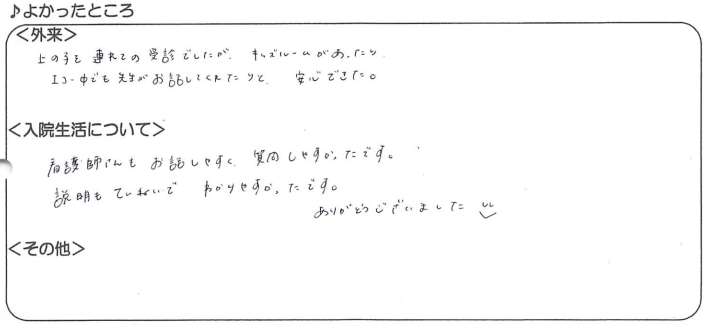 ♪よかったところ
<外来>
上の子を連れての受診でしたが、キッズルームがあったり
エコー中でも先生がお話ししてくれたりと、安心できた。
<入院生活について>
看護師さんもお話しやすく、質問しやすかったです。
説明もていねいでわかりやすかったです。
ありがとうございました
<その他>